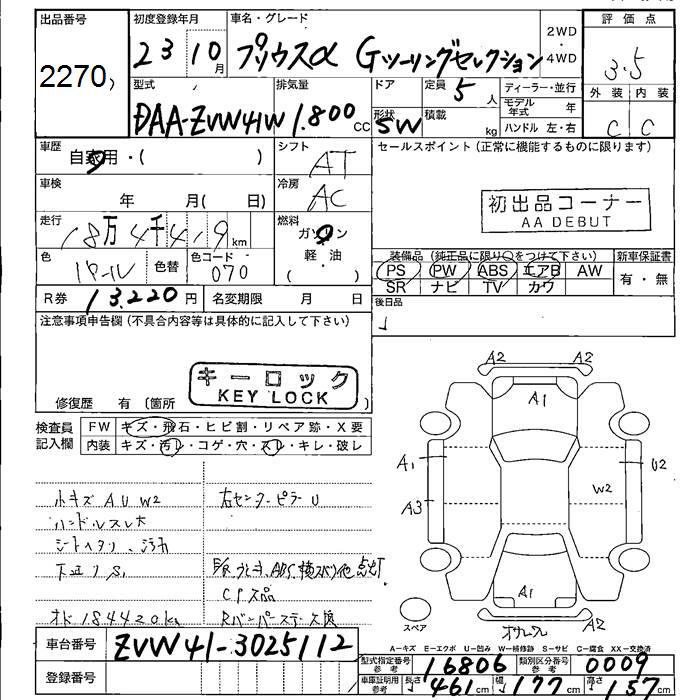 出品番号
2270
初度登録年月
23 10月
車名・グレード
プリウスα Gツーリングセレクション
2WD
・
4WD
評価点
3.5
外装 内装
C C
型式
DAA-ZVW41W
排気量
1.800 CC
ドア
形状
5W
定員
5人
積載
kg
ディーラー・並行
モデル年式 年
ハンドル 左・右
車歴
自家用・( )
シフト
AT
セールスポイント(正常に機能するものに限ります)
車検
年 月( 日)
冷房
AC
初出品コーナー
AA DEBUT
走行
18万4千419km
燃料
ガソリン
軽・油
( )
色
パール
色替
色コード
070
装備品(純正品に限り○をつけて下さい)
PS PW ABS エアB AW
SR ナビ TV カワ
新車保証書
有・無
R券 13.220円
名変期限 月 日
後日品
注意事項申告欄(不具合内容等は具体的に記入して下さい)
キーロック
KEY LOCK
修復歴 有(箇所
検査員
記入欄
FW キズ・飛石・ヒビ割・リペア跡・X要
内装 キズ・汚レ・コゲ・穴・スレ・キレ・破レ
小キズ A U W2
右センターピラーU
ハンドルスレ大
シートヘタリ、汚れ
下廻りS
ABS、横スベリ他点灯
CP欠品
オド184420km
A2 A2
A1
A1
U2
A3
W2
A1
A2
スペア
車台番号 ZVW41-3025112
登録番号
A-キズ E-エクボ U-凹み W-補修跡 S-サビ C-腐食 XX-交換済
型式指定番号参考 16806
類別区分番号参考 0009
車庫証明用参考 長さ 461cm 幅 177cm 高さ 157cm